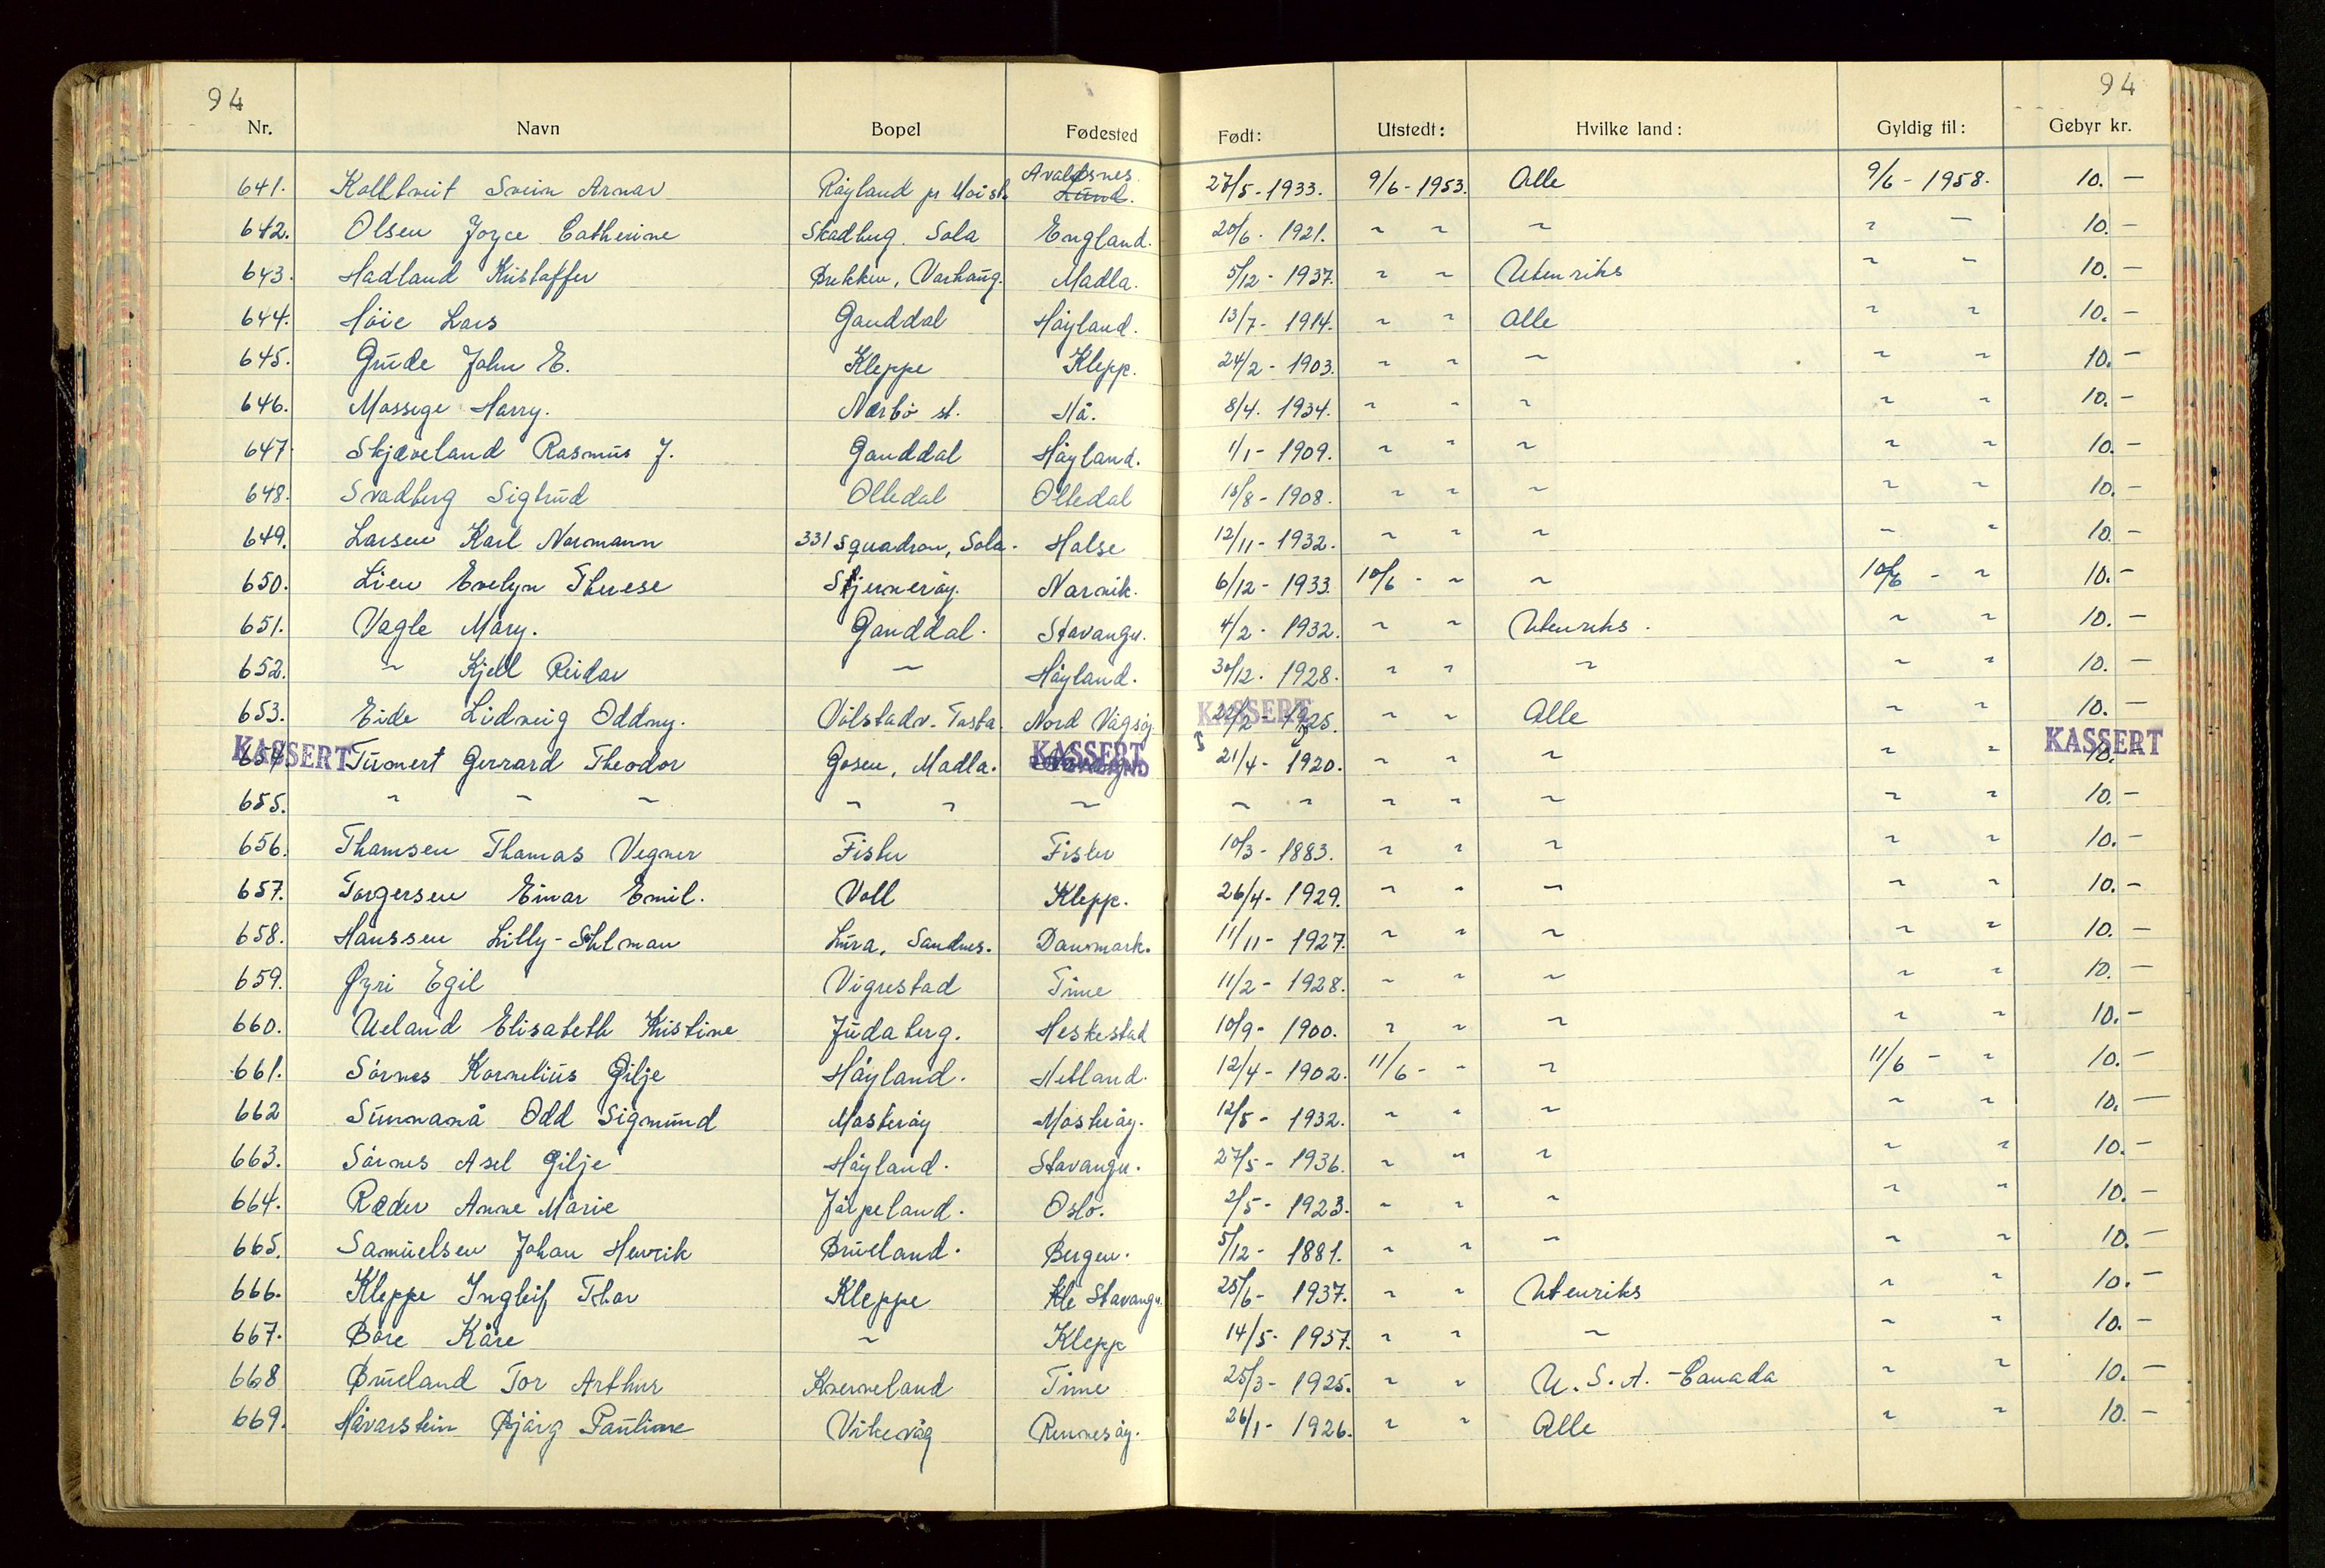 94 94
Nr. Navn Bopel Fødested Født: Utstedt: Hvilke land: Gyldig til: Gebyr kr.
641. Kalltveit Svein Arnar Røyland pr Moi st. Avaldsnes. Lund. 27/5-1933. 9/6-1953. Alle 9/6-1958. 10.-
642. Olsen Joyce Catherine Skadberg. Sola England. 20/6-1921. " " " " " 10.-
643. Hadland Kristoffer Brekken, Varhaug. Madla. 5/12-1937. " " Utenriks " " 10.-
644. Høie Lars Ganddal Høyland. 13/7-1914. " " Alle " " 10.-
645. Grude John E. Kleppe Klepp. 24/2-1903. " " " " " 10.-
646. Massege Harry. Nærbø st. Hå. 8/4. 1934. " " " " " 10.-
647 Skjæveland Rasmus J. Ganddal Høyland. 1/1-1909. " " " " " 10.-
648. Svadberg Sigtrud Oltedal Oltedal 18/8-1908. " " " " " 10.-
649. Larsen Karl Normann 331 Squadron, Sola. Halse 12/11-1932. " " " " " 10.-
650. Lien Evelyn Therese Stjernerøy. Narvik. 6/12-1933. 10/6 - " " 10/6 - " 10.-
651. Vagle Mary. Ganddal. Stavanger. 4/2-1932. " " Utenriks. " " 10.-
652. " Kjell Reidar " Høyland. 30/12. 1928. " " " " " 10.-
653. Eide Lidveig Oddny. Vålstadv. Tasta. Nord Vågsøy KASSERT 22/2-1925. " " Alle " " 10.-
654 KASSERT Tunert Gerrard Theodor Gosen, Madla. KASSERT 21/4-1920. " " " " " 10.- KASSERT
655. " " " " " " " " " " " " " 10.-
656. Thomsen Thomas Vegner Fister Fister 10/3-1883. " " " " " 10.-
657. Torgersen Einar Emil. Voll Klepp. 26/4-1929. " " " " " 10.-
658. Hanssen Lilly-Sohlman Lura, Sandnes. Danmark. 11/11-1927. " " " " " 10.-
659. Øyri Egil Vigrestad Time 11/2-1928. " " " " " 10.-
660. Ueland Elisabeth Kristine Judaberg. Heskestad 10/9-1900. " " " " " 10.-
661. Sørnes Kornelius Gilje Høyland. Hetland. 12/4-1902. 11/6 - " " 11/6 - " 10.-
662 Sunnanå Odd Sigmund Mosterøy Mosterøy. 12/5-1932. " " " " " 10.-
663. Sørnes Asel Gilje Høyland. Stavanger. 27/5-1936. " " " " " 10.-
664. Ræder Anne Marie Jørpeland. Oslo. 2/5-1923. " " " " " 10.-
665. Samuelsen Johan Henrik Brueland. Bergen. 5/12-1881. " " " " " 10.-
666. Kleppe Ingleif Thor Kleppe Kle Stavanger. 25/6-1937. " " Utenriks " " 10.-
667. Bore Kåre " Klepp 14/5-1937. " " " " " 10.-
668 Brueland Tor Arthur Kverneland Time 25/3-1925. " " U.S.A.-Canada " " 10.-
669. Håvarstein Bjørg Pauline Vikevåg Rennesøy. 26/1-1926. " " Alle " " 10.-